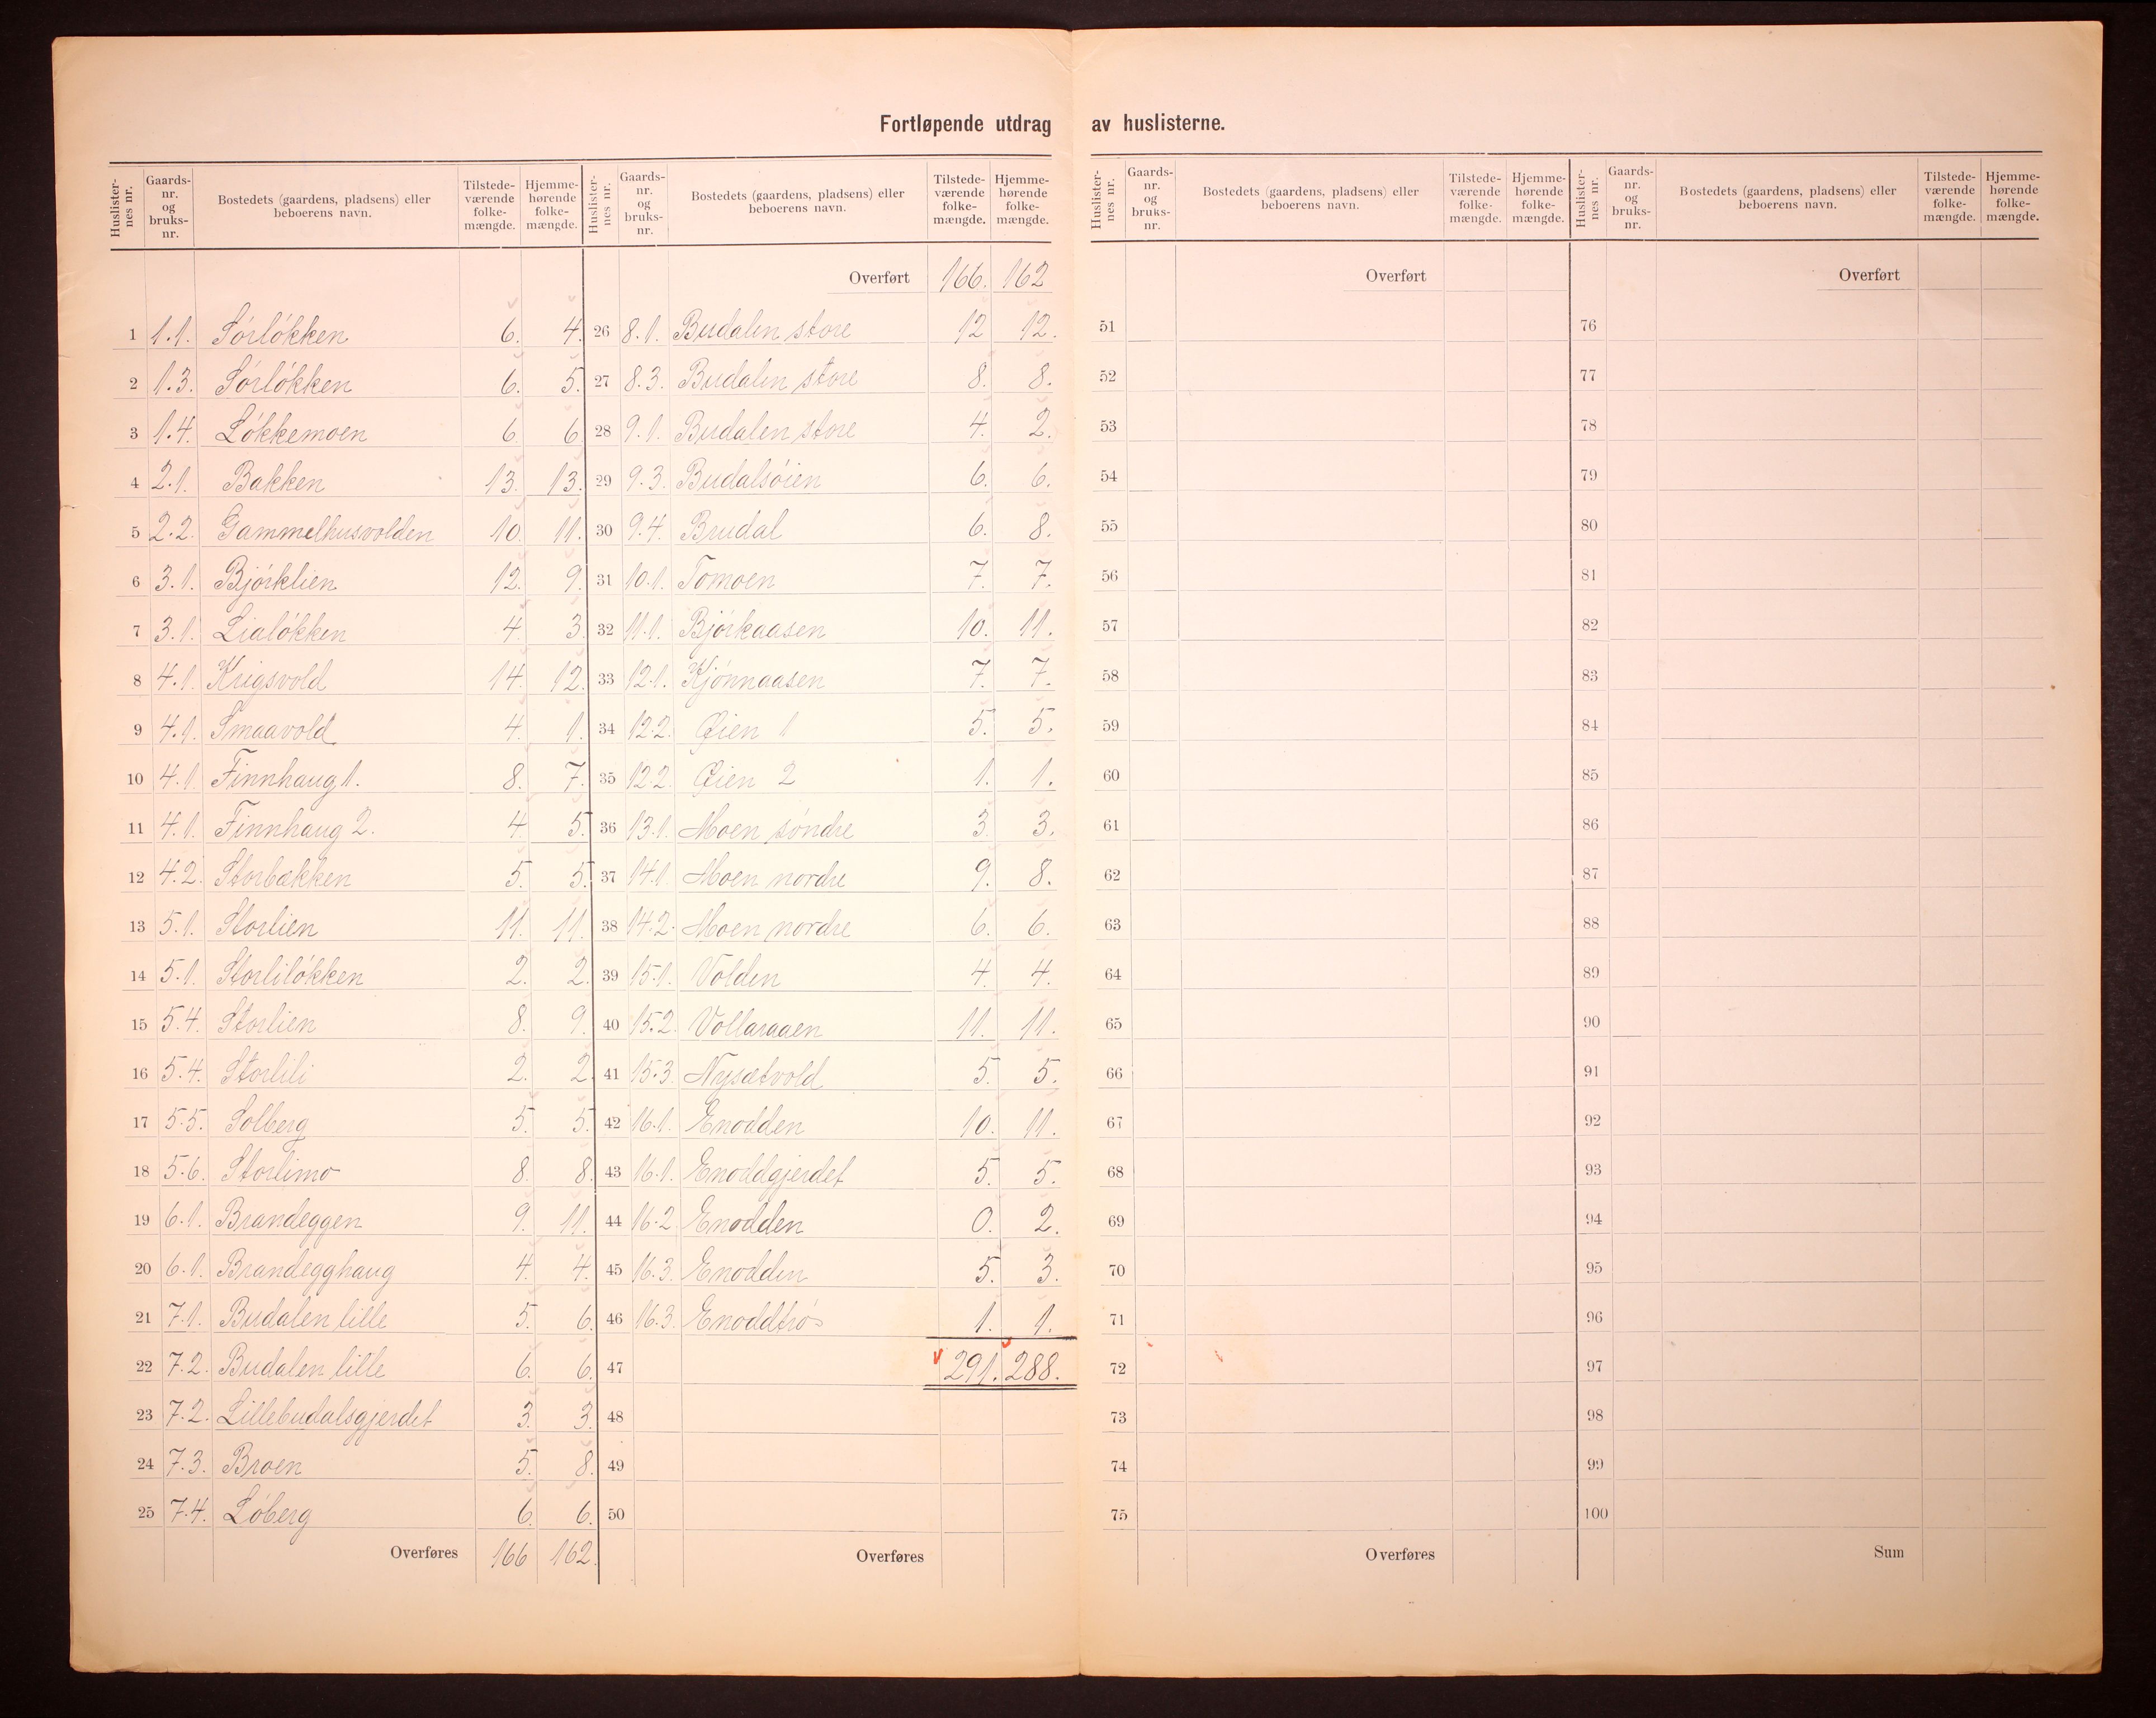 Fortløpende utdrag av huslisterne.
Huslister-nes nr. Gaards-nr. og bruks-nr. Bostedets (gaardens, pladsens) eller beboerens navn. Tilstede-værende folke-mængde. Hjemme-hørende folke-mængde.
1 1.1. Sörlökken 6. 4.
2 1.3. Sörlökken 6. 5.
3 1.4. Lökkemoen 6 6
4 2.1. Bakken 13. 13.
5 2.2. Gammelhusvolden 10. 11.
6 3.1. Bjórklien 12. 9.
7 3.1. Lialökken 4. 3.
8 4.1. Krigsvold 14. 12.
9 4.1. Smaavold 4. 1.
10 4.1. Finnhaug 1. 8. 7.
11 4.1. Finnhaug 2. 4. 5.
12 4.2. Storbækken 5. 5.
13 5.1. Storlien 11. 11.
14 5.1. Storlilökken 2. 2.
15 5.4. Storlien 8. 9.
16 5.4. Storlili 2. 2.
17 5.5. Solberg 5. 5.
18 5.6. Storlimo 8. 8.
19 6.1. Brandeggen 9. 11.
20 6.1. Brandegghaug 4. 4.
21 7.1. Budalen lille 5. 6.
22 7.2. Budalen lille 6. 6.
23 7.2. Lillebudalsgjerdet 3. 3.
24 7.3. Broen 5. 8.
25 7.4. Löberg 6. 6.
Overføres 166 162.
Huslister-nes nr. Gaards-nr. og bruks-nr. Bostedets (gaardens, pladsens) eller beboerens navn. Tilstede-værende folke-mængde. Hjemme-hørende folke-mængde.
Overført 166. 162
26 8.1. Budalen store 12 12.
27 8.3. Budalen store 8. 8.
28 9.1. Budalen store 4. 2.
29 9.3. Budalsöien 6. 6.
30 9.4. Brudal 6. 8.
31 10.1. Tomoen 7. 7.
32 11.1. Bjórkaasen 10. 11.
33 12.1. Kjönnaasen 7. 7.
34 12.2. Øien 1 5. 5.
35 12.2. Øien 2 1. 1.
36 13.1. Moen söndre 3. 3.
37 14.1 Moen nordre 9. 8.
38 14.2. Moen nordre 6. 6.
39 15.1. Volden 4. 4.
40 15.2. Vollaraaen 11. 11.
41 15.3. Nysætvold 5. 5.
42 16.1. Enodden 10. 11.
43 16.1. Enoddgjerdet 5. 5.
44 16.2 Enodden 0. 2.
45 16.3. Enodden 5. 3.
46 16.3. Enoddtrö 1. 1.
47 291. 288.
48
49
50
Overføres
Huslister-nes nr. Gaards-nr. og bruks-nr. Bostedets (gaardens, pladsens) eller beboerens navn. Tilstede-værende folke-mængde. Hjemme-hørende folke-mængde.
Overført
51
52
53
54
55
56
57
58
59
60
61
62
63
64
65
66
67
68
69
70
71
72
73
74
75
Overføres
Huslister-nes nr. Gaards-nr. og bruks-nr. Bostedets (gaardens, pladsens) eller beboerens navn. Tilstede-værende folke-mængde. Hjemme-hørende folke-mængde.
Overført
76
77
78
79
80
81
82
83
84
85
86
87
88
89
90
91
92
93
94
95
96
97
98
99
100
Sum